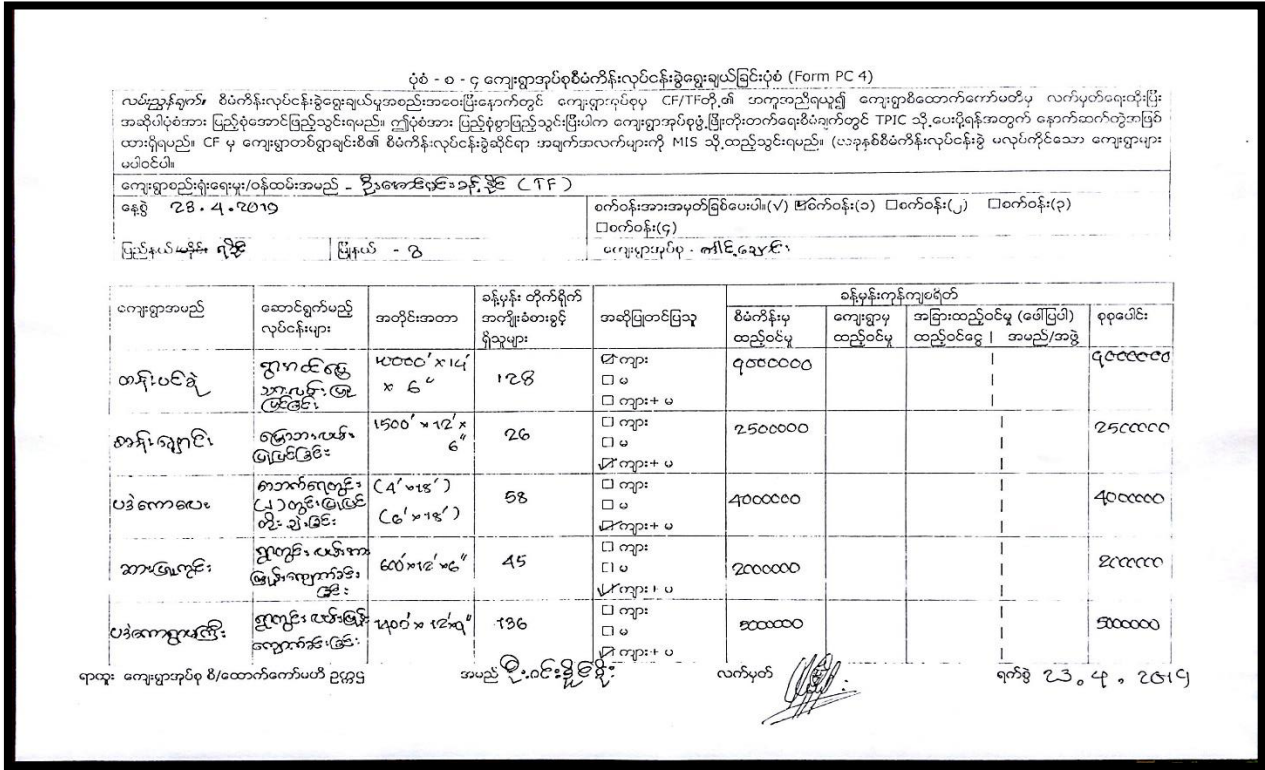 ပုံစံ - စ - ၄ ကျေးရွာအုပ်စုစီမံကိန်းလုပ်ငန်းခွဲရွေးချယ်ခြင်းပုံစံ (Form PC 4)
လမ်းညွှန်ချက်။ စီမံကိန်းလုပ်ငန်းခွဲရွေးချယ်မှုအစည်းအဝေးပြီးနောက်တွင် ကျေးရွာအုပ်စုမှ CF/TFတို့၏ အကူအညီရယူ၍ ကျေးရွာစီထောက်ကော်မတီမှ လက်မှတ်ရေးထိုးပြီး
အဆိုပါပုံစံအား ပြည့်စုံအောင်ဖြည့်သွင်းရမည်။ ဤပုံစံအား ပြည့်စုံစွာဖြည့်သွင်းပြီးပါက ကျေးရွာအုပ်စုဖွံ့ဖြိုးတိုးတက်ရေးစီမံချက်တွင် TPIC သို့ပေးပို့ရန်အတွက် နောက်ဆက်တွဲအဖြစ်
ထားရှိရမည်။ CF မှ ကျေးရွာတစ်ရွာချင်းစီ၏ စီမံကိန်းလုပ်ငန်းခွဲဆိုင်ရာ အချက်အလက်များကို MIS သို့ထည့်သွင်းရမည်။ (ယခုနှစ်စီမံကိန်းလုပ်ငန်းခွဲ မလုပ်ကိုင်သော ကျေးရွာများ
မပါဝင်ပါ။
ကျေးရွာစည်းရုံးရေးမှူး/ဝန်ထမ်းအမည် - (TF)
နေ့စွဲ 23.4.2019 စက်ဝန်းအားအမှတ်ခြစ်ပေးပါ။(√) ☑စက်ဝန်း(၁) □စက်ဝန်း(၂) □စက်ဝန်း(၃)
□စက်ဝန်း(၄)
ပြည်နယ်/တိုင်း ရခိုင် မြို့နယ် - ကျေးရွာအုပ်စု -
ကျေးရွာအမည် ဆောင်ရွက်မည့် လုပ်ငန်းများ အတိုင်းအတာ ခန့်မှန်း တိုက်ရိုက် အကျိုးခံစားခွင့် ရှိသူများ အဆိုပြုတင်ပြသူ ခန့်မှန်းကုန်ကျစရိတ်
စီမံကိန်းမှ ထည့်ဝင်မှု ကျေးရွာမှ ထည့်ဝင်မှု အခြားထည့်ဝင်မှု (ဖော်ပြပါ) ထည့်ဝင်ငွေ | အမည်/အဖွဲ့ စုစုပေါင်း
ထန်းပင်ခွဲ x 14' x 6" 128 ☑ ကျား □ မ □ ကျား+ မ
1500' x 12' x 6" 26 □ ကျား □ မ ☑ ကျား+ မ 2500000 2500000
ပဒဲကောလေး (4' x 18') (6' x 18') 58 □ ကျား □ မ ☑ ကျား+ မ 4000000 4000000
600' x 12' x 6" 45 □ ကျား □ မ ☑ ကျား+ မ 2000000 2000000
ပဒဲကောရွာမကြီး 136 □ ကျား □ မ ☑ ကျား+ မ 5000000 5000000
ရာထူး ကျေးရွာအုပ်စု စီ/ထောက်ကော်မတီ ဥက္ကဌ အမည် လက်မှတ် ရက်စွဲ 23.4.2019